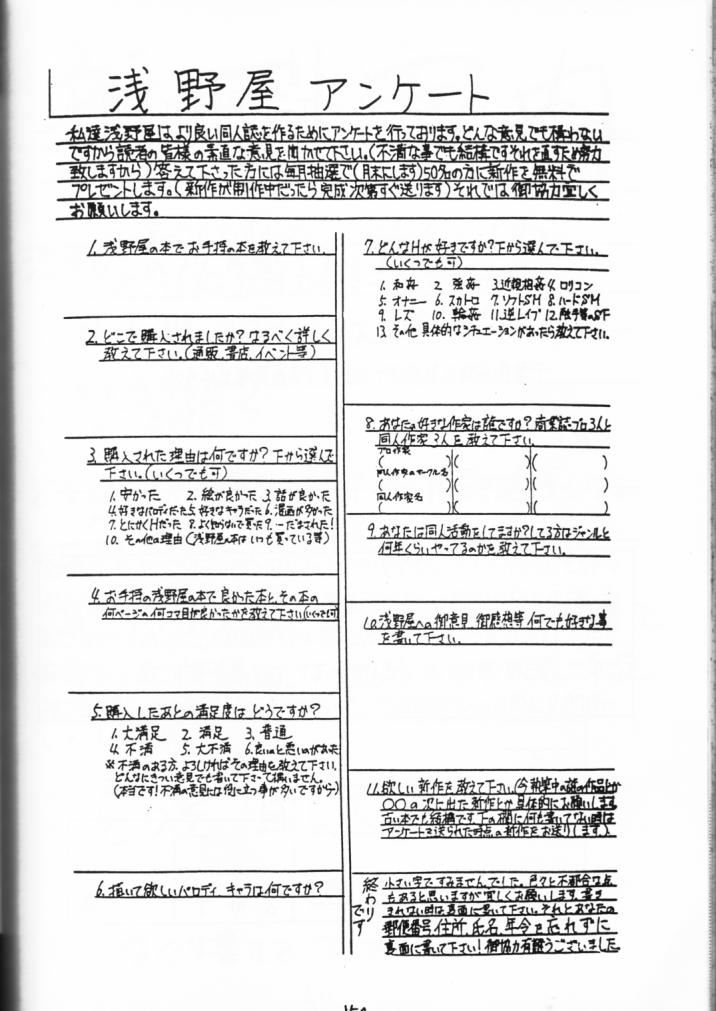 浅野屋 アンケート
私達浅野屋はより良い同人誌を作るためにアンケートを行っております。どんな意見でも構わない
ですから読者の皆様の素直な意見を聞かせて下さい。(不満な事でも結構ですそれを直すため努力
致しますから)答えて下さった方には毎月抽選で(月末にします)50名の方に新作を無料で
プレゼントします。(新作が制作中だったら完成次第すぐ送ります)それでは御協力宜しく
お願いします。
1. 浅野屋の本でお手持の本を教えて下さい.
2. どこで購入されましたか?なるべく詳しく
教えて下さい。(通販、書店、イベント等)
3. 購入された理由は何ですか?下から選んで
下さい。(いくつでも可)
1. 安かった 2. 絵が良かった 3. 話が良かった
4. 好きなパロディだった 5. 好きなキャラだった 6. 漫画が多かった
7. とにかくHだった 8. よく知らないで買った 9. 一だまされた!
10. その他の理由(浅野屋の本はいつも買っている等)
4. お手持の浅野屋の本で良かった本と、その本の
何ページの何コマ目が良かったかを教えて下さい(いくつでも可)
5. 購入したあとの満足度はどうですか?
1. 大満足 2. 満足 3. 普通
4. 不満 5. 大不満 6. 良いのと悪いのがあった
※不満のある方、よろしければその理由を教えて下さい.
どんなにきつい意見でも書いて下さって構いません。
(本当です!不満の意見には役に立つ事が多いですから)
6. 描いて欲しいパロディ、キャラは何ですか?
7. どんなHが好きですか?下から選んで下さい.
(いくつでも可)
1. 和姦 2. 強姦 3. 近親相姦 4. ロリコン
5. オナニー 6. スカトロ 7. ソフトSM 8. ハードSM
9. レズ 10. 輪姦 11. 逆レイプ 12. 触手等のSF
13. その他 具体的なシチュエーションがあったら教えて下さい.
8. あなたの好きな作家は誰ですか?商業誌・プロ3人と
同人作家3人を教えて下さい.
プロ作家
( )( )( )
同人作家のサークル名
( )( )( )
同人作家名
( )( )( )
9. あなたは同人活動をしてますか?してる方はジャンルと
何年くらいやってるのかを教えて下さい。
10. 浅野屋への御意見、御感想等何でも好きな事
を書いて下さい.
11. 欲しい新作を教えて下さい(今執筆中の話の作品とか
〇〇の次に出た新作とか具体的にお願いします
古い本でも結構です下の欄に何も書いてない時は
アンケートを送られた時点の新作をお送りします)
終わりです
小さい字ですみませんでした。色々と不都合な点
もあると思いますが宜しくお願いします。書き
きれない時は裏面に書いて下さい。それとあなたの
郵便番号、住所、氏名、年令を忘れずに
裏面に書いて下さい!御協力有難うございました